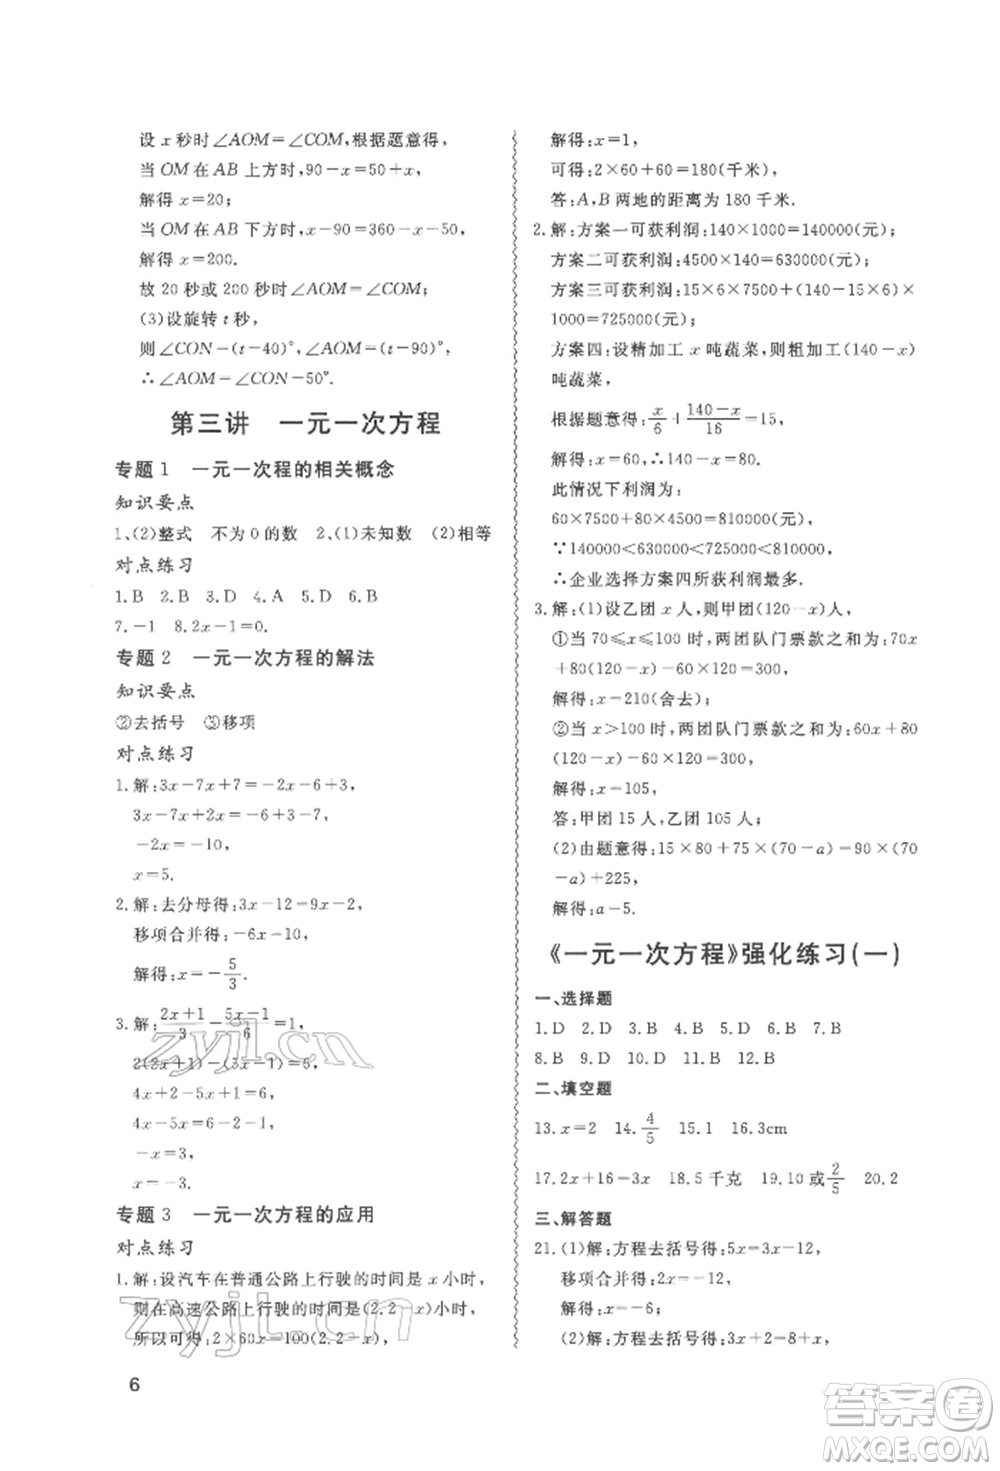 设 x 秒时∠AOM=∠COM,根据题意得,
当 OM 在 AB 上方时,90-x=50+x,
解得 x=20;
当 OM 在 AB 下方时,x-90=360-x-50,
解得 x=200.
故 20 秒或 200 秒时∠AOM=∠COM;
(3)设旋转 t 秒,
则∠CON-(t-40)°,∠AOM=(t-90)°,
∴∠AOM=∠CON-50°.
第三讲 一元一次方程
专题 1 一元一次程的相关概念
知识要点
1.(2)整式 不为 0 的数 2.(1)未知数 (2)相等
对点练习
1.B 2.B 3.D 4.A 5.D 6.B
7.-1 8.2x-1=0.
专题 2 一元一次方程的解法
知识要点
②去括号 ③移项
对点练习
1.解:3x-7x+7=-2x-6+3,
3x-7x+2x=-6+3-7,
-2x=-10,
x=5.
2.解:去分母得:3x-12=9x-2,
移项合并得:-6x-10,
解得:x=-5/3.
3.解:(2x+1)/3-(5x-1)/6=1,
2(2x+1)-(5x-1)=6,
4x+2-5x+1=6,
4x-5x=6-2-1,
-x=3,
x=-3.
专题 3 一元一次方程的应用
对点练习
1.解:设汽车在普通公路上行驶的时间是 x 小时,
则在高速公路上行驶的时间是(2.2-x)小时,
所以可得:2×60x=100(2.2-x),
6
解得:x=1,
可得:2×60+60=180(千米),
答:A,B 两地的距离为 180 千米.
2.解:方案一可获利润:140×1000=140000(元),
方案二可获利润:4500×140=630000(元),
方案三可获利润:15×6×7500+(140-15×6)×
1000=725000(元),
方案四:设精加工 x 吨蔬菜,则粗加工(140-x)
吨蔬菜,
根据题意得:x/6+(140-x)/16=15,
解得:x=60,∴140-x=80.
此情况下利润为:
60×7500+80×4500=810000(元),
∵140000<630000<725000<810000,
∴企业选择方案四所获利润最多.
3.解:(1)设乙团 x 人,则甲团(120-x)人,
①当 70⩽x⩽100 时,两团队门票款之和为:70x
+80(120-x)-60×120=300,
解得:x=210(舍去);
②当 x>100 时,两团队门票款之和为:60x+80
(120-x)-60×120=300,
解得:x=105,
答:甲团 15 人,乙团 105 人;
(2)由题意得:15×80+75×(70-a)=90×(70
-a)+225,
解得:a-5.
《一元一次方程》强化练习(一)
一、选择题
1.D 2.D 3.D 4.A 5.C 6.B 7.B
8.B 9.D 10.B 11.B 12.B
二、填空题
13.x=2 14.4/5 15.1 16.3cm
17.2x+16=3x 18.5 千克 19.10 或2/5 20.2
三、解答题
21.(1)解:方程去括号得:5x=3x-12,
移项合并得:2x=-12,
解得:x=-6;
(2)解:方程去括号得:3x+2=8+x,
zyjl.cn
zyjl.cn
答案卷
MXQE.COM